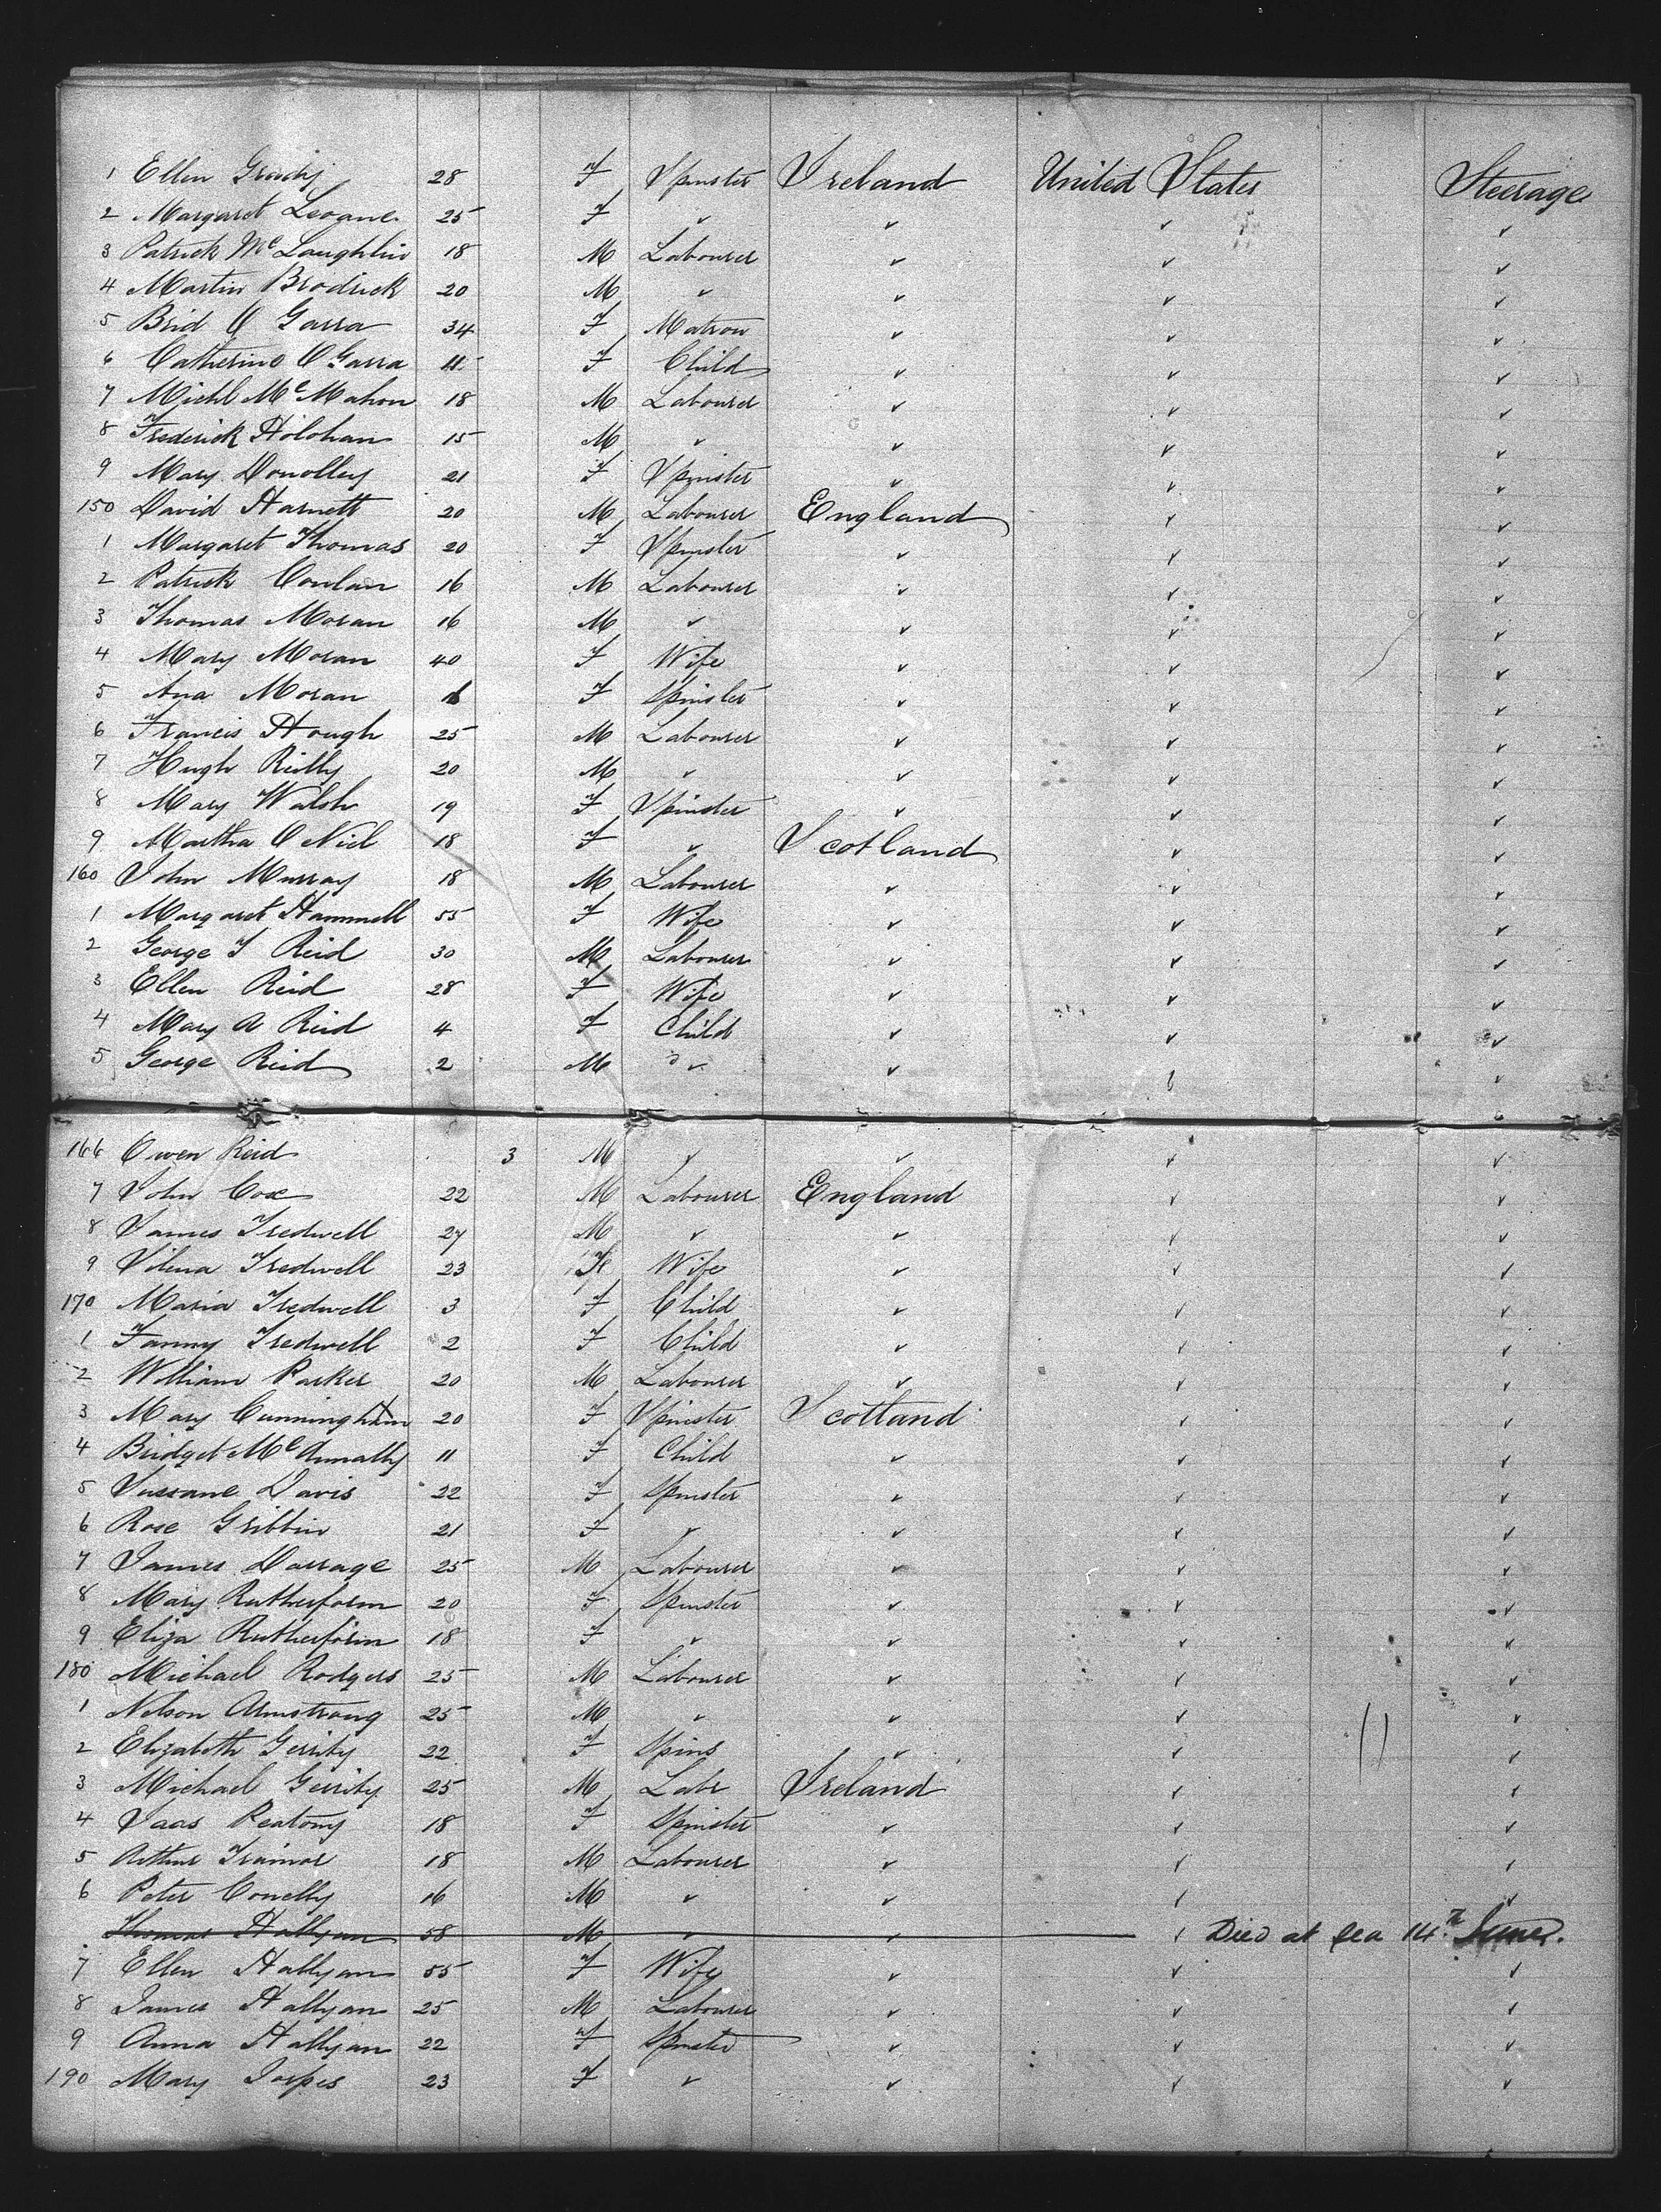 1 Ellen Grady 28 F Spinster Ireland United States Steerage
2 Margaret Leoane 25 F " " " "
3 Patrick McLaughlin 18 M Labourer " " "
4 Martin Brodrick 20 M " " " "
5 Brid O Garra 34 F Matron " " "
6 Catherine O Garra 11 F Child " " "
7 Michl McMahon 18 M Labourer " " "
8 Frederick Holohan 15 M " " " "
9 Mary Donolley 21 F Spinster " " "
150 David Harnett 20 M Labourer England " "
1 Margaret Thomas 20 F Spinster " " "
2 Patrick Conlan 16 M Labourer " " "
3 Thomas Moran 16 M " " " "
4 Mary Moran 40 F Wife " " "
5 Ana Moran F Spinster " " "
6 Francis Hough 25 M Labourer " " "
7 Hugh Reilly 20 M " " " "
8 Mary Walsh 19 F Spinster " " "
9 Martha O Niel 18 F " Scotland " "
160 John Murray 18 M Labourer " " "
1 Margaret Hammell 55 F Wife " " "
2 George T Reid 30 M Labourer " " "
3 Ellen Reid 28 F Wife " " "
4 Mary A Reid 4 F Child " " "
5 George Reid 2 M " " " "
166 Owen Reid 3 M " " " "
7 John Cox 22 M Labourer England " "
8 James Tredwell 27 M " " " "
9 Silena Tredwell 23 F Wife " " "
170 Maria Tredwell 3 F Child " " "
1 Fanny Tredwell 2 F Child " " "
2 William Parker 20 M Labourer " " "
3 Mary Cunningham 20 F Spinster Scotland " "
4 Bridget McAnnally 11 F Child " " "
5 Sussane Davis 22 F Spinster " " "
6 Rose Gribbin 21 F " " " "
7 James Darrage 25 M Labourer " " "
8 Mary Rutherform 20 F Spinster " " "
9 Eliza Rutherform 18 F " " " "
180 Michael Rodgers 25 M Labourer " " "
1 Nelson Armstrong 25 M " " " "
2 Elizabeth Gerrity 22 F Spins " " "
3 Michael Gerrity 25 M Labr Ireland " "
4 18 F Spinster " " "
5 Arthur Trainor 18 M Labourer " " "
6 Peter Conelly 16 M " " " "
Thomas Hallyan 58 M " " " Died at sea 14th June.
7 Ellen Hallyan 55 F Wife " " "
8 James Hallyan 25 M Labourer " " "
9 Anna Hallyan 22 F Spinster " " "
190 Mary 23 F " " " "